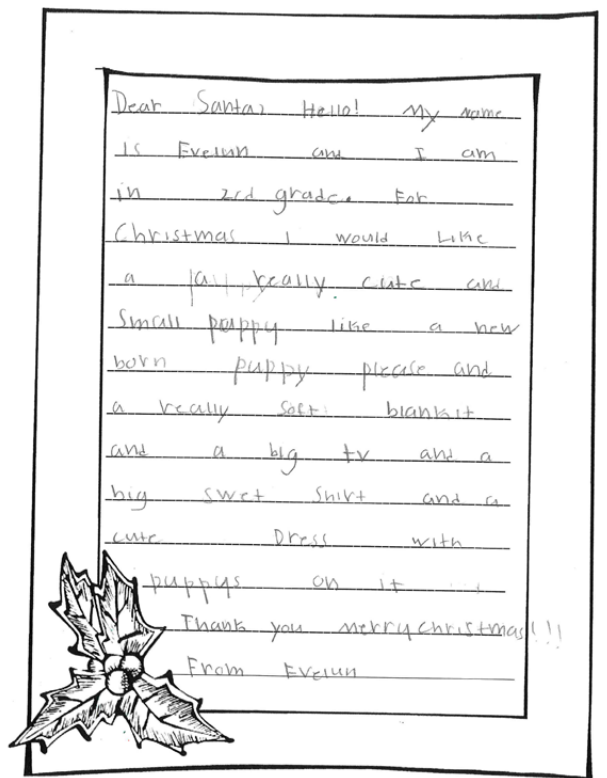 Dear Santa, Hello! My name
is Evelun and I am
in 2rd grade. For
Christmas I would Like
a really cute and
Small puppy like a new
born puppy please and
a really soft blankit
and a big tv and a
big swet shirt and a
cute Dress with
puppys on it
Thank you merry christmas!!!
From Evelun